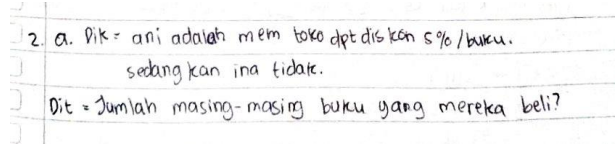 2. a. Dik = ani adalah mem toko dpt diskon 5% /buku.
sedangkan ina tidak.
Dit = Jumlah masing-masing buku yang mereka beli?